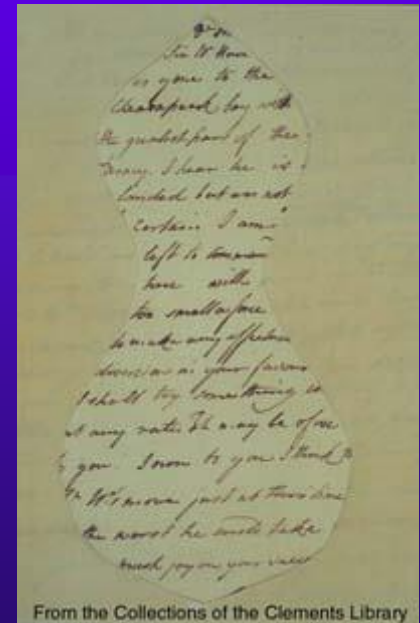 Sir W Howe
is gone to the
Chesapeak bay with
the greatest part of the
army. I hear he is
landed but am not
certain. I am
left to
here with
too small a force
to make any effectual
diversion in your favour
I shall try something
at any rate. It may be of use
to you. I own to you I think
Sr W's move just at this time
the worst he could take
much joy on your
From the Collections of the Clements Library